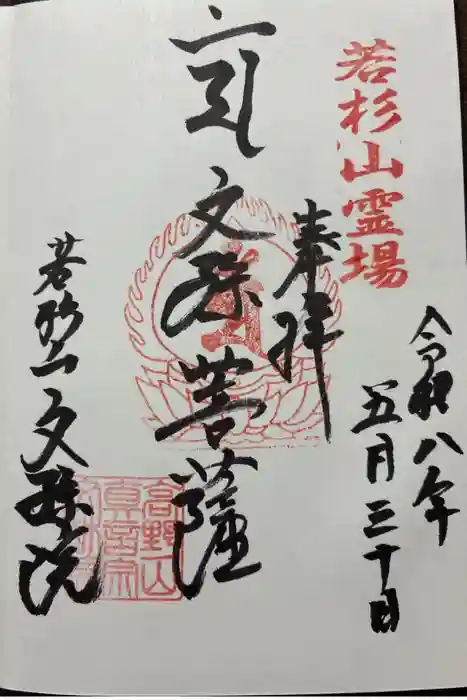 若杉山霊場
令和八年
五月三十日
奉拝
文殊菩薩
若杉山文殊院
高野山
真言宗